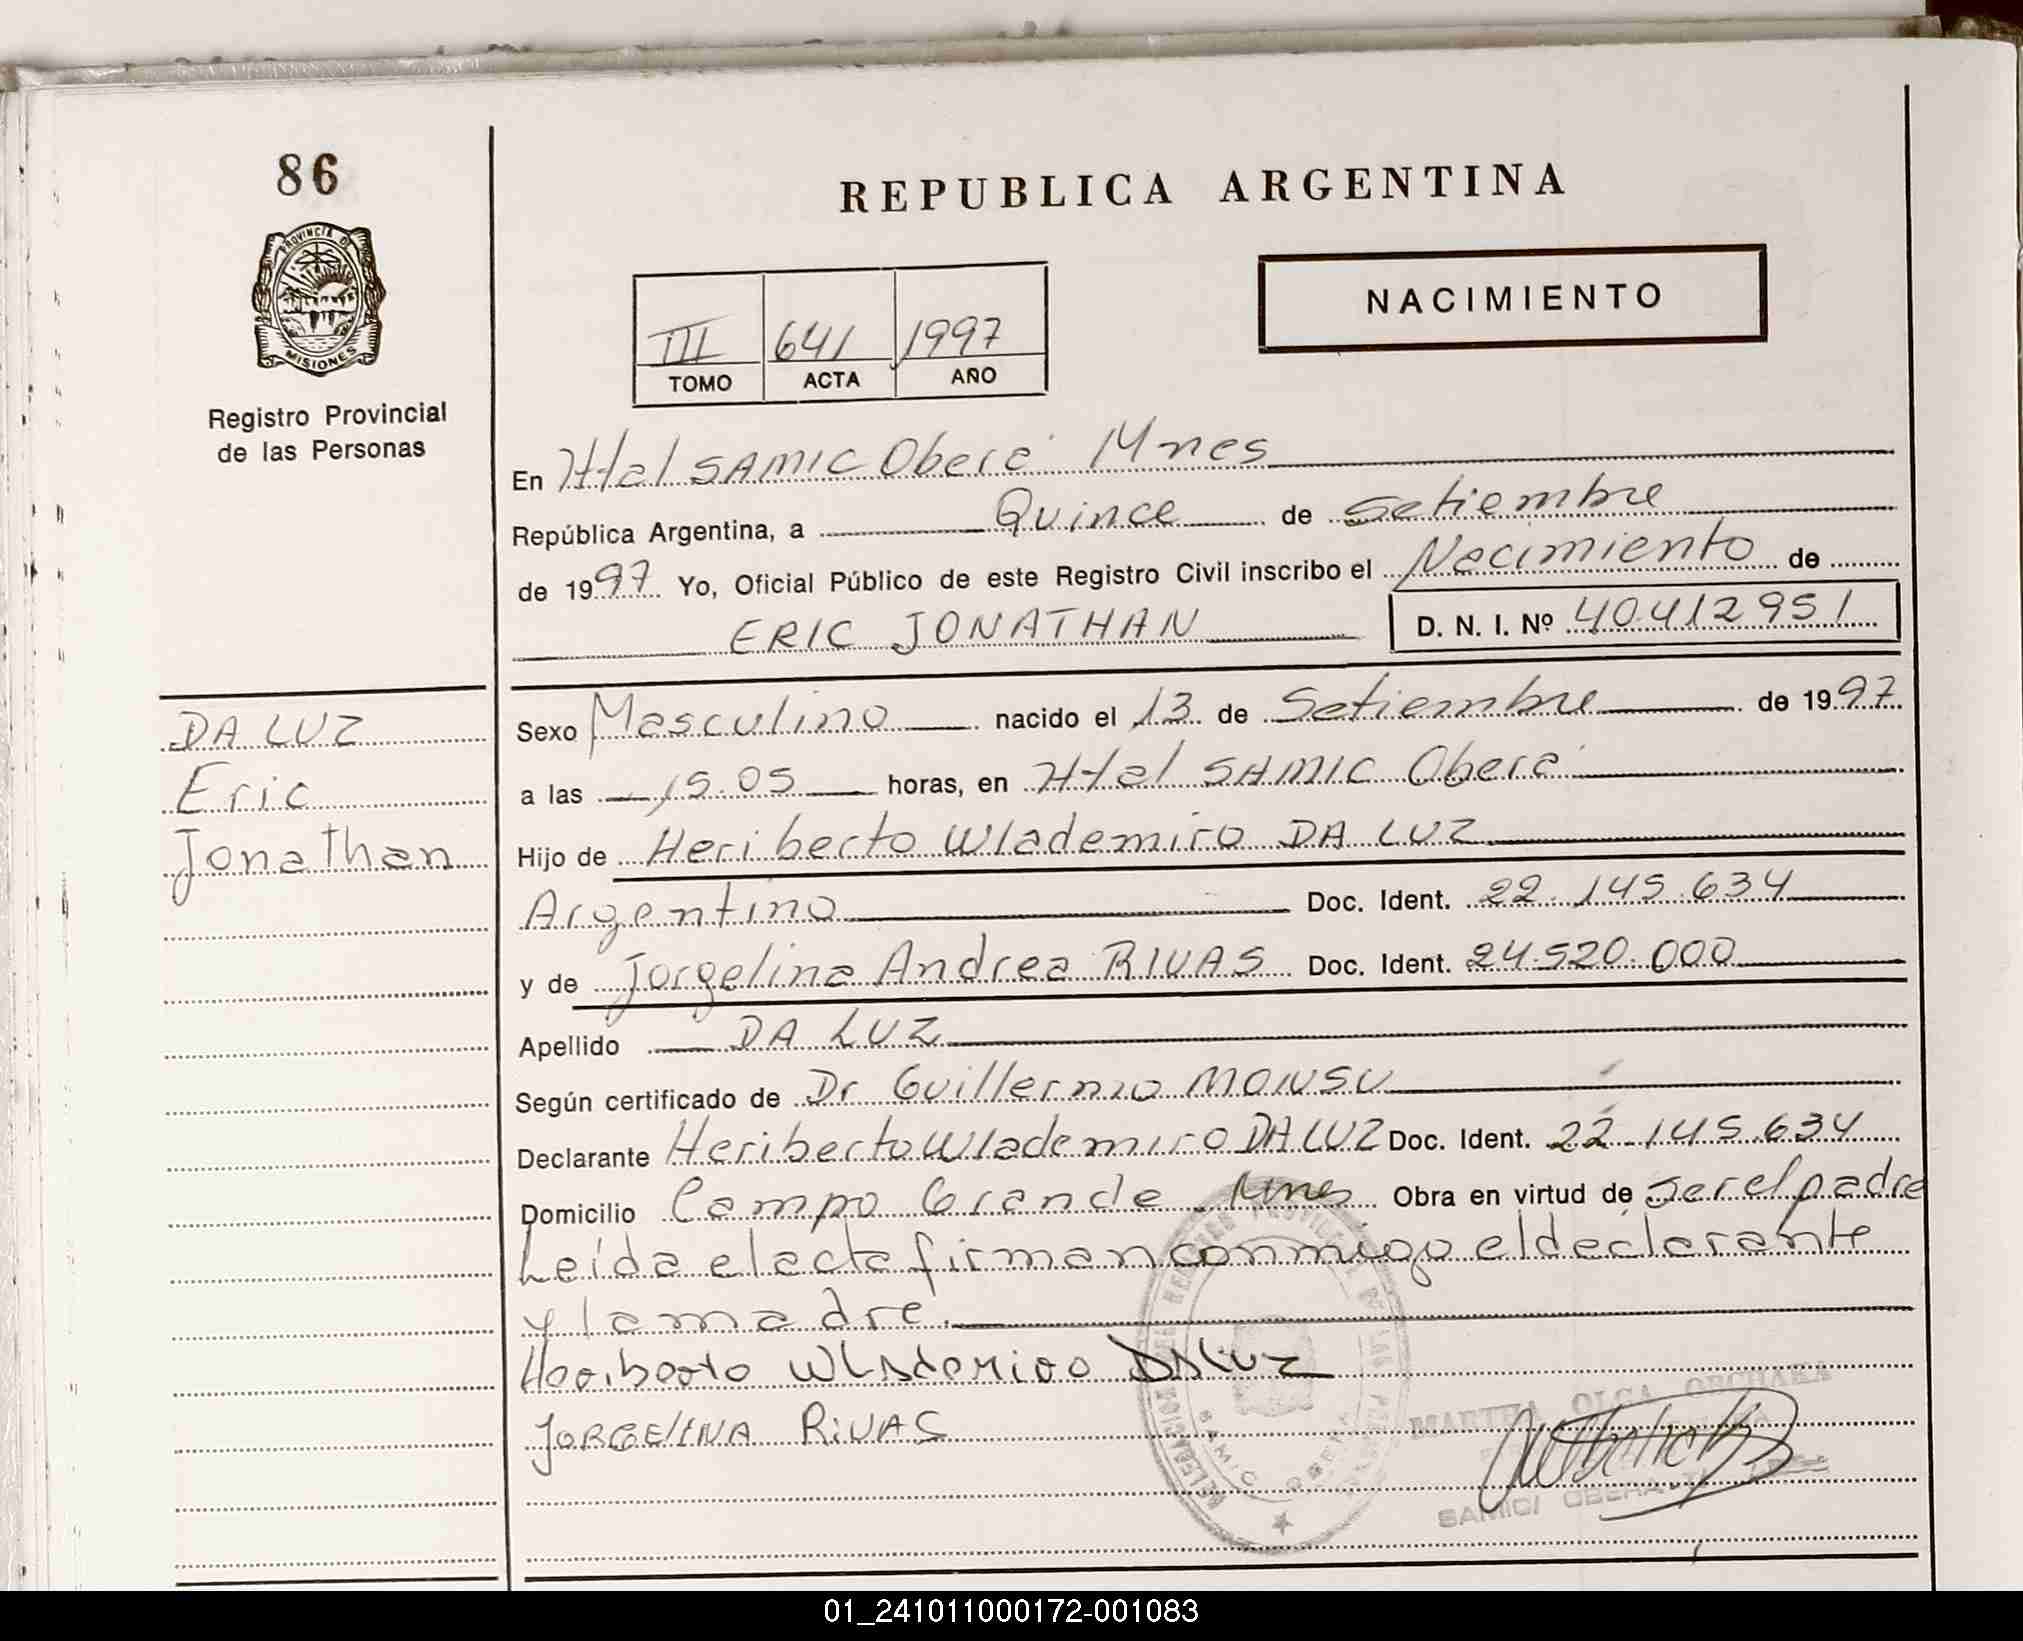 86
REPUBLICA ARGENTINA
PROVINCIA DE
MISIONES
NACIMIENTO
III 641 1997
TOMO ACTA AÑO
Registro Provincial
de las Personas
En Htal SAMIC Oberá Mnes
República Argentina, a Quince de Setiembre
de 1997 Yo, Oficial Público de este Registro Civil inscribo el Nacimiento de
ERIC JONATHAN D. N. I. Nº 40.412951
DA LUZ
Eric
Jonathan
Sexo Masculino nacido el 13 de Setiembre de 1997
a las 15.05 horas, en Htal SAMIC Oberá
Hijo de Heriberto Wlademiro DA LUZ
Argentino Doc. Ident. 22.145.634
y de Jorgelina Andrea RIVAS Doc. Ident. 24.520.000
Apellido DA LUZ
Según certificado de Dr Guillermo MONSU
Declarante Heriberto Wlademiro DA LUZ Doc. Ident. 22.145.634
Domicilio Campo Grande Mnes Obra en virtud de ser el padre
Leída el acta firman conmigo el declarante
y la madre.
Heriberto WLADEMIRO DA LUZ
JORGELINA RIVAS
MARTHA OLGA
SAMIC/ OBERA
SAMIC OBERA
01_241011000172-001083